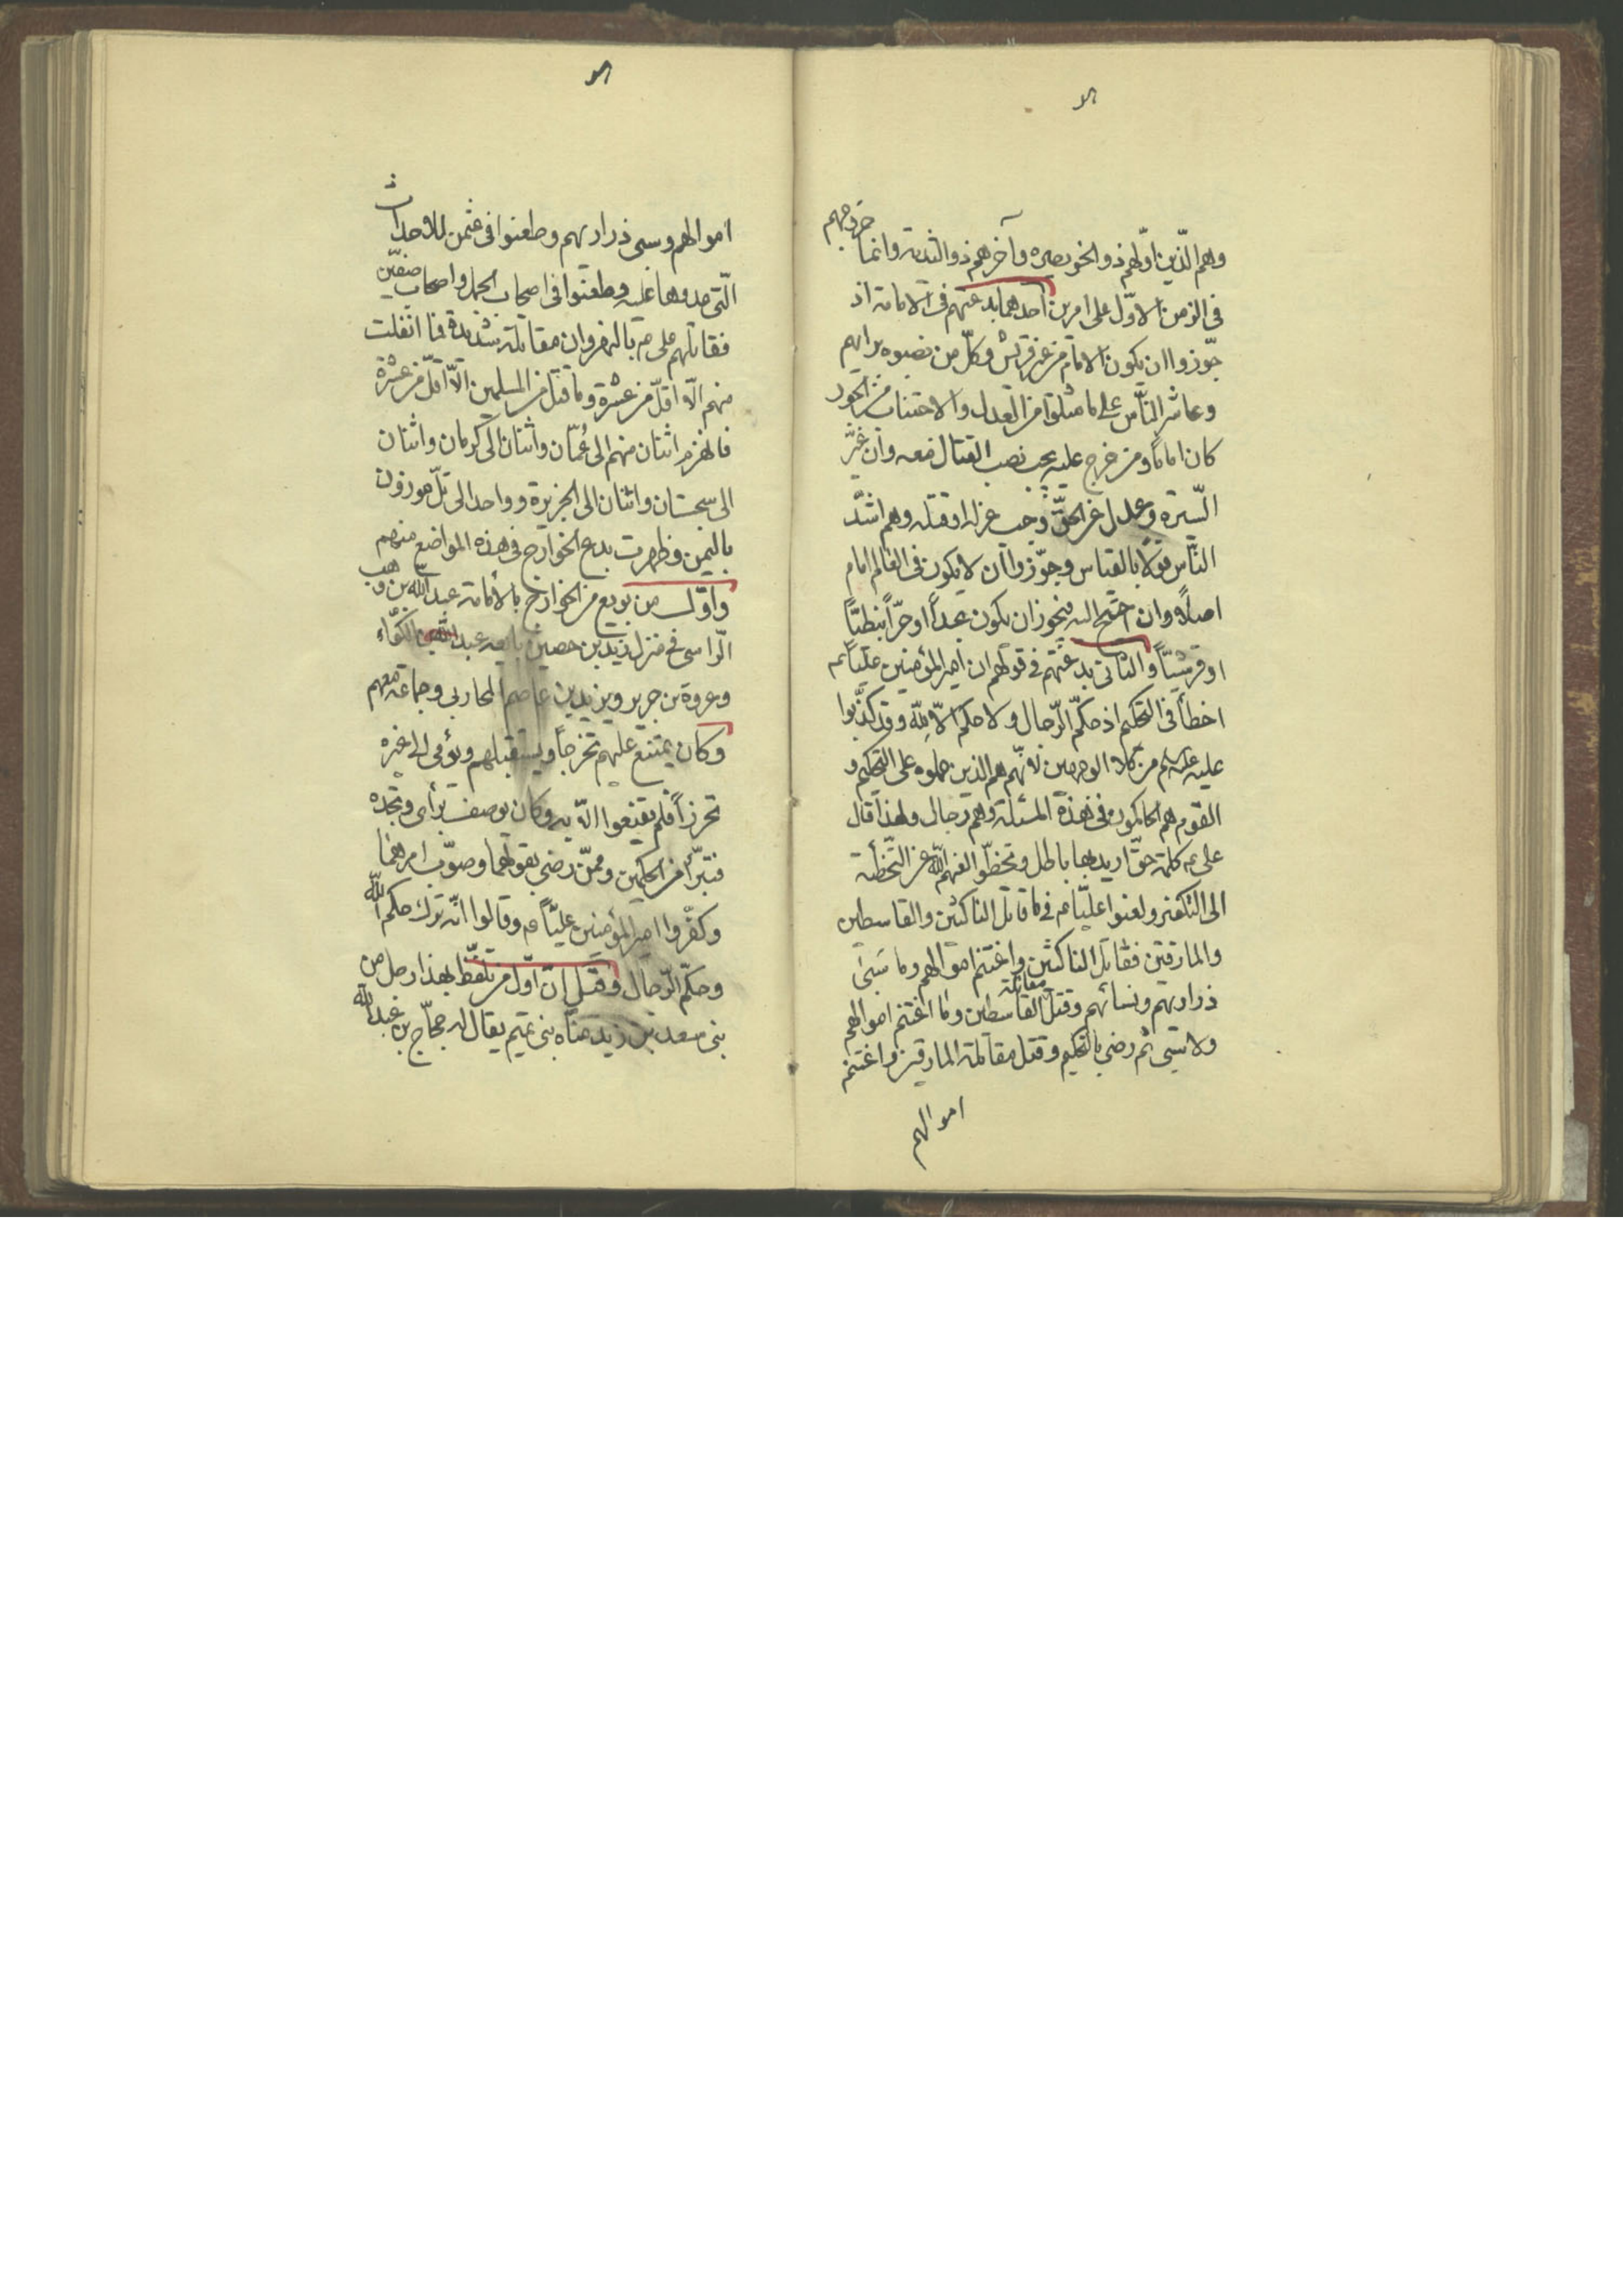 وهم الذين اوّلهم ذو الخويصره وآخرهم ذو الثديه وانما خروجهم
فى الزمن الاوّل على امرين احدهما بدعتهم فى الامامة اذ
جوّزوا ان يكون الامام من غير قريش وكلّ من نصبوه برايهم
وعاشر النّاس على ما مثلوا من العدل والاجتناب من الجور
كان اماماً ومن خرج عليه يجب نصب القتال معه وان غيّر
السّيرة وعدل عن الحقّ وجب عزله او قتله وهم اشدّ
النّاس قولاً بالقياس وجوّزوا ان لا يكون فى العالم امام
اصلاً وان احتيج اليه فيجوز ان يكون عبداً او حرّاً او نبطيّاً
او قرشيّاً والثانى بدعتهم فى قولهم ان امير المؤمنين عليّاً عم
اخطأ فى التحكيم اذ حكّم الرّجال ولا حكم الاّ لله وقد كذبوا
عليه من كلا الوجهين لانّهم هم الذين حملوه على التحكيم و
القوم هم الحاكمون فى هذه المسئلة وهم رجال ولهذا قال
على عم كلمة حقّ اريد بها باطل وتخطّوا عن التّخطئة
الى التكفير ولعنوا عليّاً عم فى ما قاتل الناكثين والقاسطين
والمارقين فقاتل الناكثين واغتنم اموالهم وما سبى
ذراريهم ونسائهم وقتل مقاتلة القاسطين وما اغتنم اموالهم
ولا سبى ثم رضى بالتحكيم وقتل مقاتلة المارقين واغتنم
اموالهم
اموالهم وسبى ذراريهم وطعنوا فى عثمن للاحداث
الّتى عدوها عليه وطعنوا فى اصحاب الجمل واصحاب صفّين
فقاتلهم على عم بالنهروان مقاتلة شديدة فما انفلت
منهم الاّ اقلّ من عشرة وما قتل من المسلمين الاّ اقلّ من عشرة
فانهزم اثنان منهم الى عُمّان واثنان الى كرمان واثنان
الى سجستان واثنان الى الجزيرة وواحد الى تلّ موزون
باليمن وظهرت بدع الخوارج فى هذه المواضع منهم
واوّل من بويع من الخوارج بالامامة عبد الله بن وهب
الرّاسى فى منزل زيد بن حصين بايعه عبد الله بن الكوّاء
وعروة بن جرير ويزيد بن عاصم المحاربى وجماعة معهم
وكان يمتنع عليهم تحرجاً ويستقبلهم ويؤمى الى غيره
تحرزاً فلم يقنعوا الاّ به وكان يوصف برأى ونجده
فتبرّأ من الحكمين وممّن رضى بقولهما وصوّب امرهما
وكفّروا امير المؤمنين عليّاً عم وقالوا انّه ترك حكم الله
وحكّم الرّجال وقيل ان اوّل من تلفّظ بهذا رجل من
بنى سعد بن زيد مناه بنى تميم يقال له حجّاج بن عبد الله